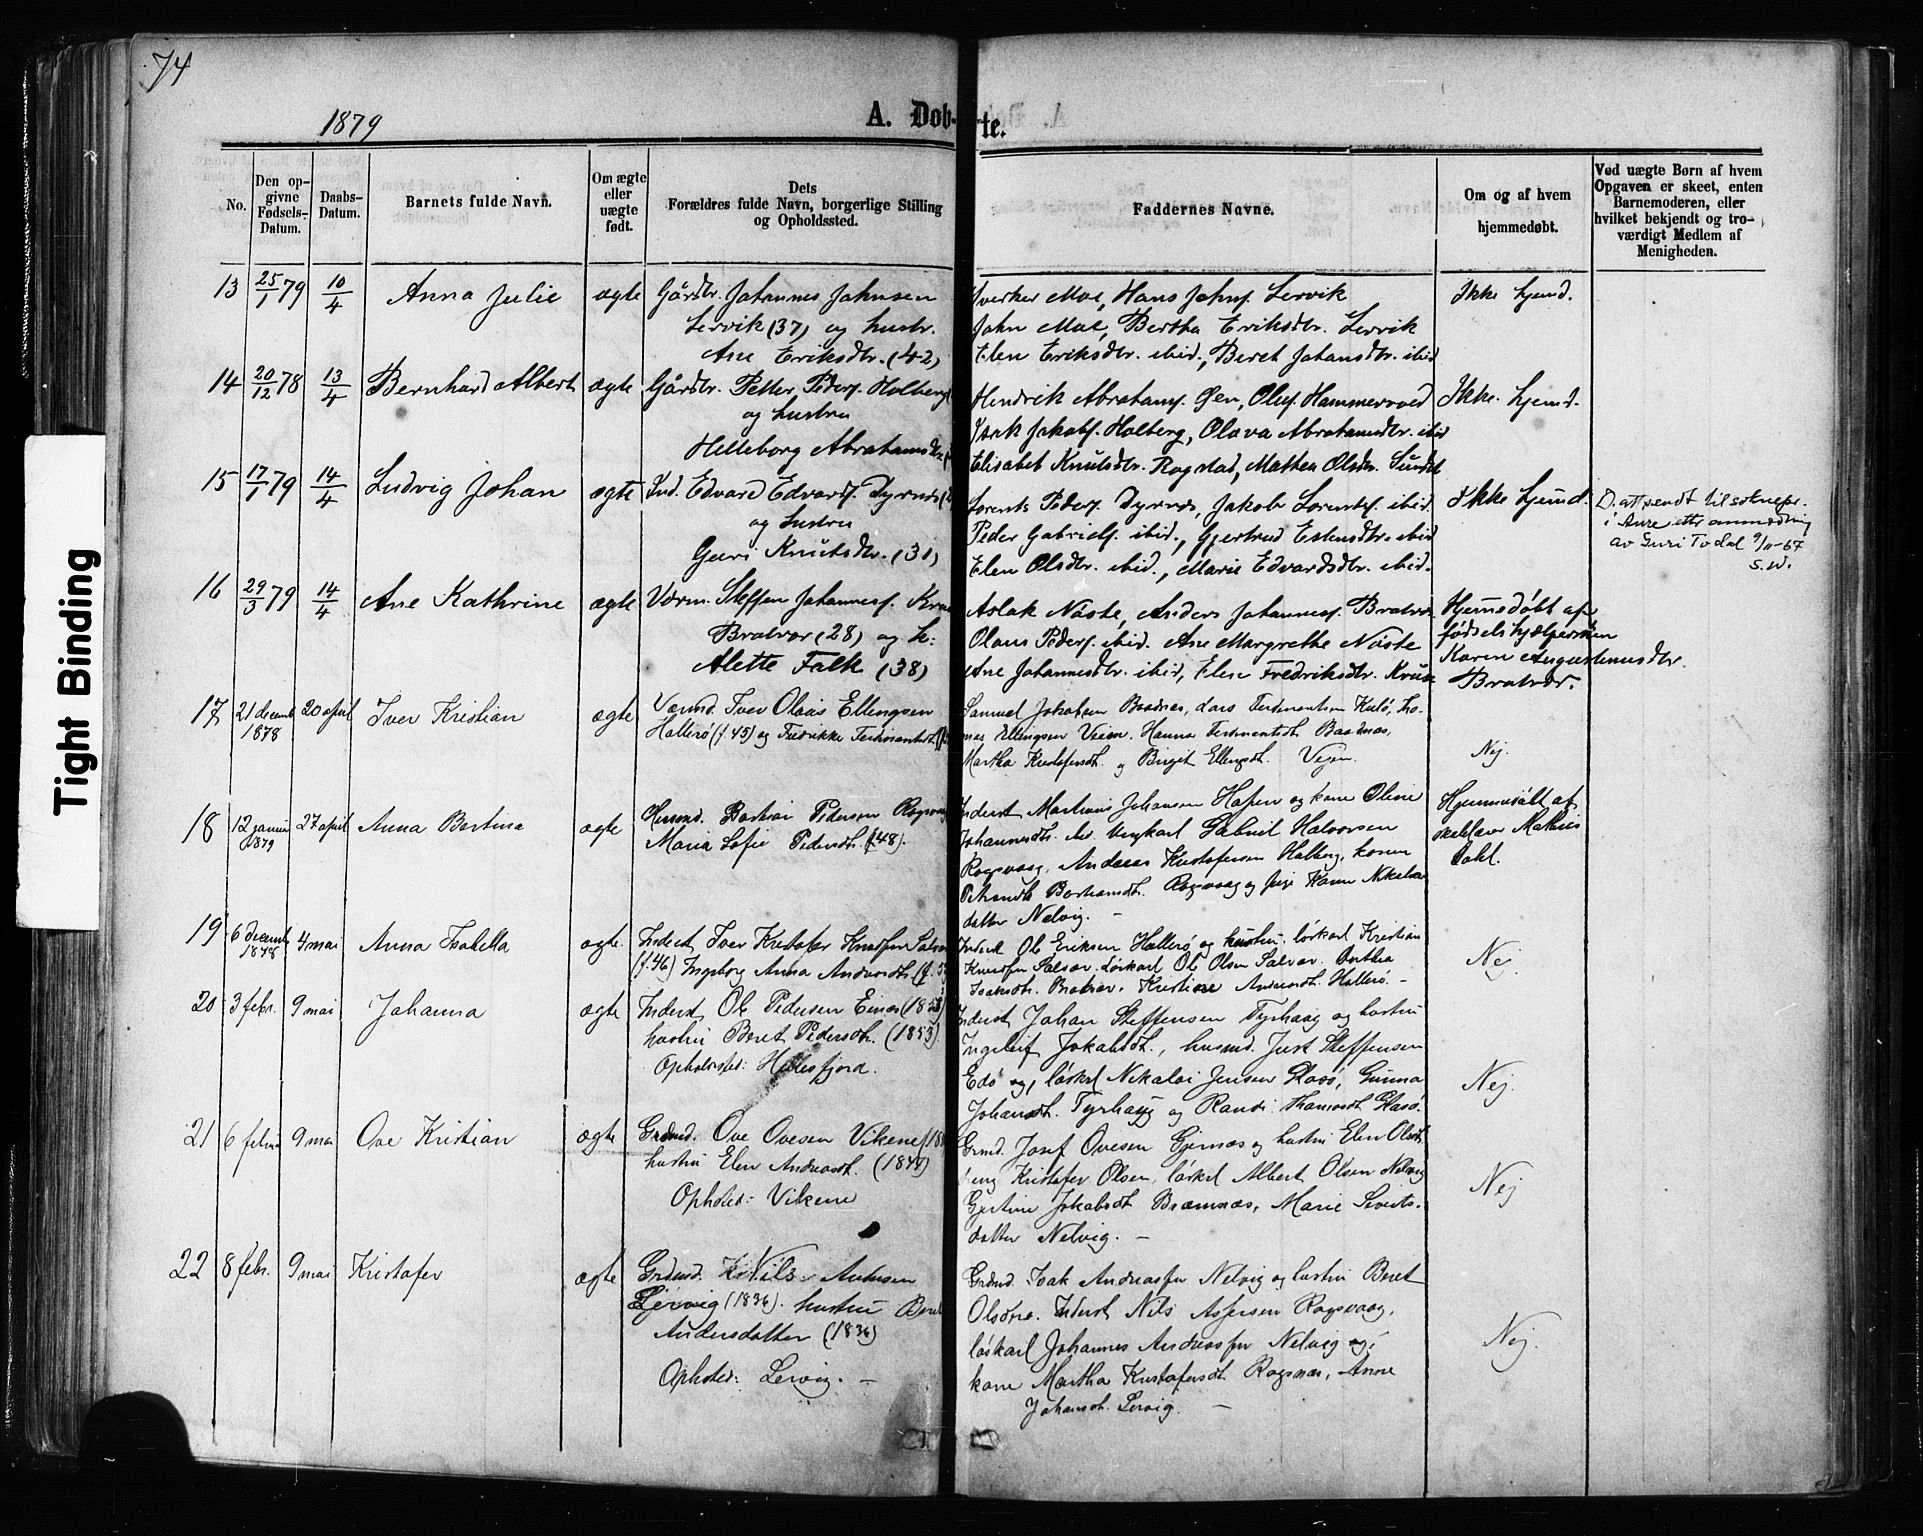 74
1879
A. Døb-te.
No.
Den opgivne Fødsels-Datum.
Daabs-Datum.
Barnets fulde Navn.
Om ægte eller uægte født.
Dets Forældres fulde Navn, borgerlige Stilling og Opholdssted.
Faddernes Navne.
Om og af hvem hjemmedøbt.
Ved uægte Børn af hvem Opgaven er skeet, enten Barnemoderen, eller hvilket bekjendt og troværdigt Medlem af Menigheden.
13 25/1 79 10/4 Anna Julie ægte Gårdbr. Johannes Johnsen
Lervik (37) og hustr.
Ane Eriksdtr. (42)
Sverker Moe, Hans Johnf. Lervik
John Moe, Bertha Eriksdtr. Lervik
Elen Eriksdtr. ibid., Beret Johansdtr. ibid
Ikke hjemd.
14 20/12 78 13/4 Bernhard Albert ægte Gårdbr. Petter Pedersf. Holberg
og hustru
Helleborg Abrahamsdtr
Hendrik Abrahamsf. Gen, Oluf Hammervold
Isak Jakobf. Holberg, Olava Abrahamsdtr. ibid
Elisabet Knutsdtr. Rogstad, Mathea Olsdtr. Sundet
Ikke hjemd.
15 17/1 79 14/4 Ludvig Johan ægte Ind. Edvard Edvardf. Dyrnes
og hustru
Guri Knutsdtr. (31)
Lorents Pedersf. Dyrnes, Jakob Lorentsf. ibid.
Peder Gabrielf. ibid., Gjertrud Estensdtr. ibid
Elen Olsdtr. ibid., Marie Edvardsdtr. ibid.
Ikke hjemd.
D. att sendt til soknepr.
i Aure etter anmodning
av Guri Todal 9/11-67
S.W.
16 29/3 79 14/4 Ane Kathrine ægte Værm. Steffen Johannesf.
Bratvær (28) og h:
Alette Falk (38)
Aslak Nåste, Anders Johannesf. Bratvær
Olaus Pedersf. ibid. Ane Margrethe Nåste
Ane Johannesdtr. ibid, Elen Fredriksdtr.
Hjemedøbt af
fødselshjælpersken
Karen Augustinusdtr.
Bratvær.
17 21 decemb 1878 20 april Iver Kristian ægte Værmd. Iver Olaus Ellengsen
Hallerø (f. 45) og Fredrikke Ferdinantsdt
Samuel Jakobsen Baadnes, Lars Ferdinantsen Kulø, Tho-
mas Ellingsen Veien. Hanna Ferdinantsdt Baadnæs,
Martha Kristofersdt. og Birgit Ellengsdt. Vejen.
Nej.
18 12 januar 1879 27 april Anna Bertina ægte Husmd. Bastian Pedersen Rogsvaag
Maria Sofie Pedersdt. (f. 48).
Inderst Martinus Johansen Hafen og kone Oline
Johannesdt. do. Ungkarl Gabriel Halvorsen
Rogsvaag, Andreas Kristofersen Halberg, konen
Bastiansdt. Rogsvaag og pige Karen Nikolai
datter Nelvig. —
Hjemmedøbt af
skolelærer Mathias
Dahl.
19 6 decemb 1878 4 mai Anna Isabella ægte Inderst Iver Kristofer Knudsen
(f. 46) Ingeborg Anna Andersdt.
Inderst Ole Eriksen Hallerø og hustru. løskarl Kristian
Knudsen Salvær. Løskarl Ole Olsen Salvær. Dorthea
Isaksdt. Bratvær. Kristine Andersdt. Hallerø. —
Nej.
20 3 febr. 9 mai Johanna ægte Inderst Ole Pedersen Einer (1853)
hustru Beret Pedersdt. (1853).
Opholdssted: Hellesfjord.
Inderst Johan Steffensen Tyrhaug og hustru
Ingeleif Jakobsdt., husmd. Just Steffensen
Edø og, løskarl Nikolai Jensen Glasø, Gunna
Johansdt. Tyrhaug og Randi Thomasdt Glasø.
Nej.
21 6 februar 9 mai Ove Kristian ægte Grdmd. Ove Ovesen Vikene
hustru Elen Andreasdt. (1848)
Opholdsted: Vikene
Grmd. Josef Ovesen Gjernæs og hustru Elen Olsdt.
Kristofer Olsen, løskarl Albert Olsen Nelvig
Gjertine Jakobsdt Bræmnæs, Marie Siverts-
datter Nelvig. —
Nej
22 8 febr. 9 mai Kristofer ægte Grdmd. Nils Andersen
Lervig (1836). hustru Beret
Andersdatter (1836)
Opholsted: Lervig. —
Grdmd. Isak Andreassen Nelvig og hustru Beret
Olsdtr. Inderst Nils Aspersen Rogsvaag,
løskarl Johannes Andreassen Nelvig og,
kone Martha Kristofersdt. Rogsnæs, Anne
Johansdt. Lervig. —
Nej.
Tight Binding